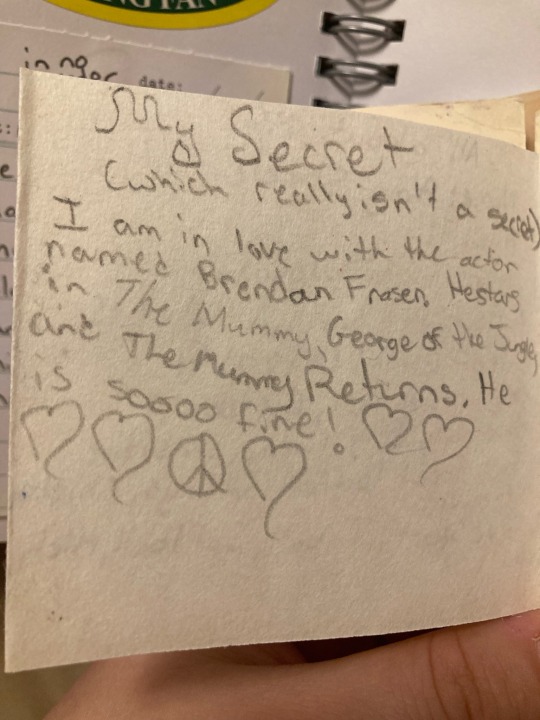 NG FAN
date:
My Secret
(which really isn't a secret)
I am in love with the actor
named Brendan Fraser. He stars
in The Mummy, George of the Jungle,
and The Mummy Returns. He
is soooo fine!